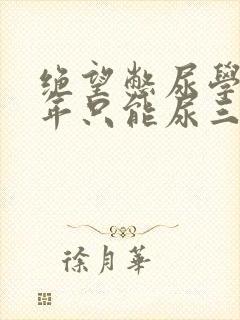 绝望憋尿学
年只能尿三
徐月华